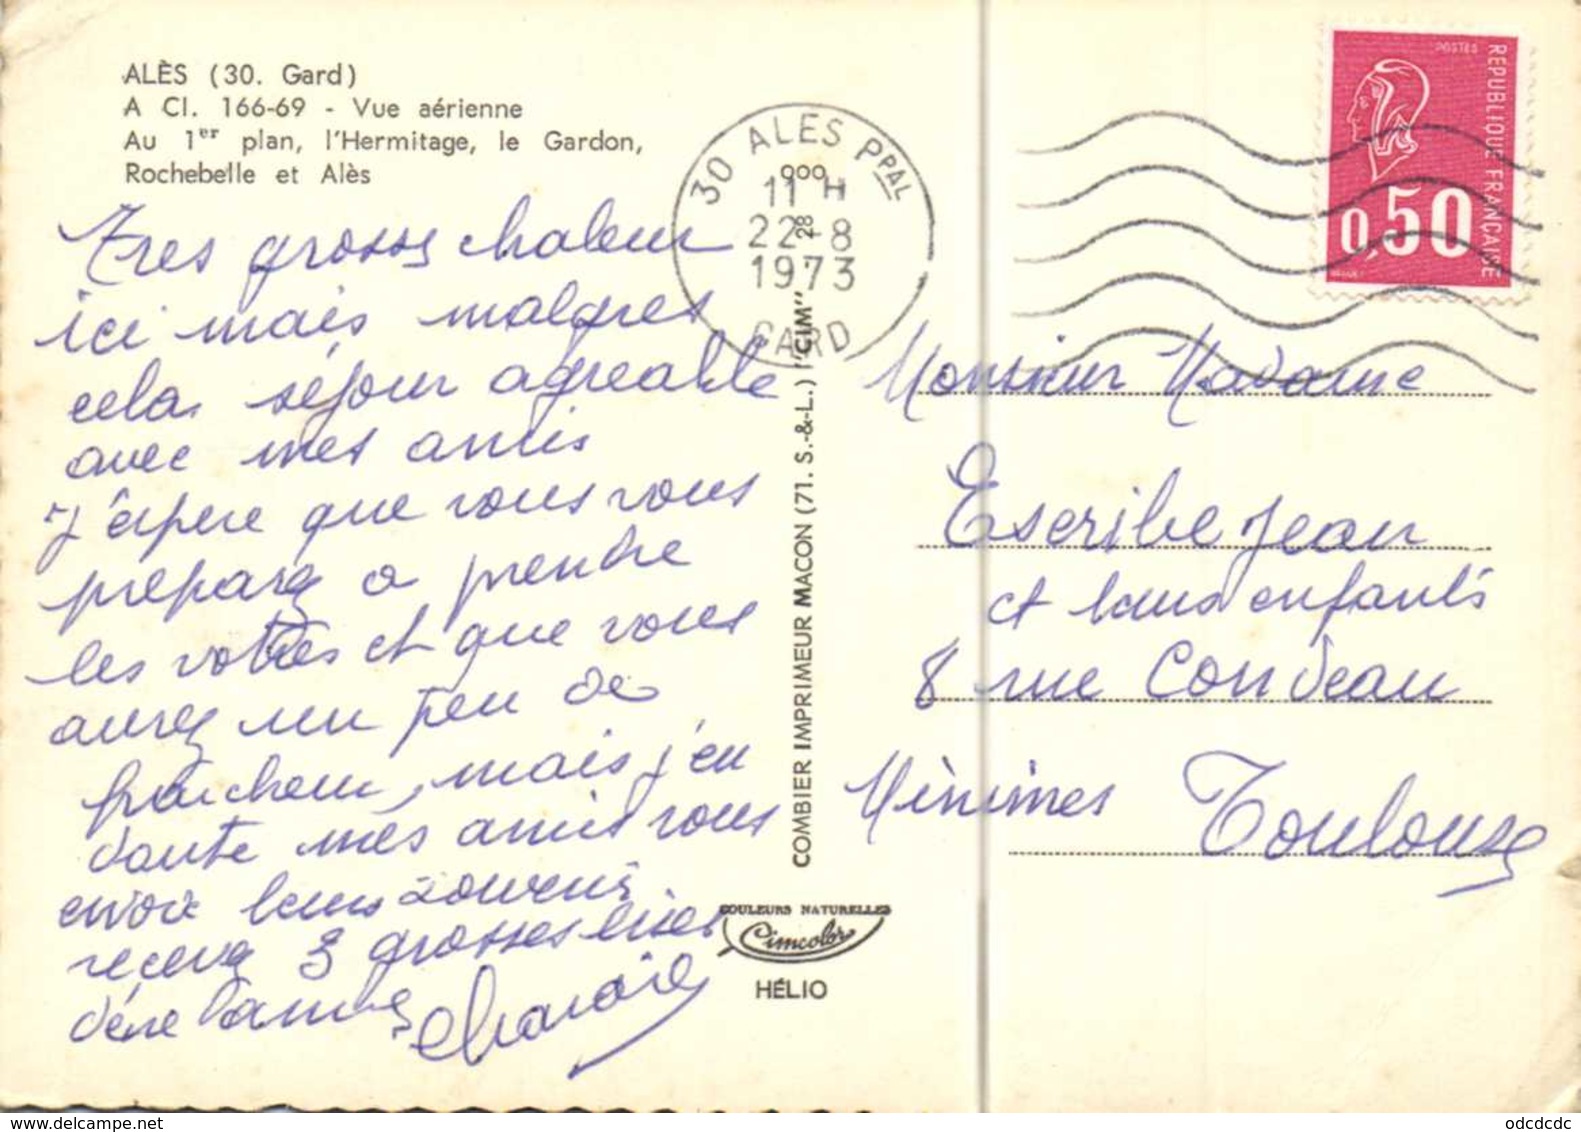 ALÈS (30. Gard)
A Cl. 166-69 - Vue aérienne
Au 1er plan, l'Hermitage, le Gardon,
Rochebelle et Alès
Tres grosses chaleur
ici mais malgres
cela séjour agreable
avec mes amis
J'espere que vous vous
préparez a prendre
les votres et que vous
aurez un peu de
fraicheur, mais j'en
doute mes amis vous
envoie leurs souvenir
recevez 3 grosses bises
30 ALES PPAL
11 H
28
22-8
1973
GARD
COMBIER IMPRIMEUR MACON (71. S.-&-L.) "CIM"
COULEURS NATURELLES
Cimcolor
HÉLIO
POSTES
REPUBLIQUE FRANÇAISE
0,50
Monsieur Madame
Escribe Jean
et leurs enfants
8 rue Condeau
Minimes Toulouse
odcdcdc
www.delcampe.net